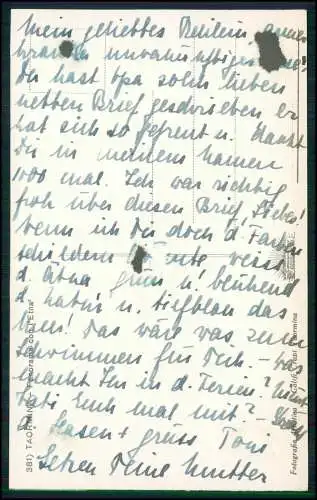 Mein geliebtes
unvernünftig
Du hast Opa solch lieben
netten Brief geschrieben er
hat sich so gefreut u. dankt
Dir in meinem Namen
1000 mal. Ich war richtig
froh über diesen Brief, Liebes!
wenn ich Dir doch d. Farben
schildern könnte weiss
d. Ätna grün u. blühend
d. Natur u. tiefblau das
Meer! Das wär was zum
Schwimmen für Dich. - Was
macht Ihr in d. Ferien?
Euch mal mit? -
grüss Toni
Deine Mutter
381) TAORMINA - Panorama con l'Etna
Fotografia